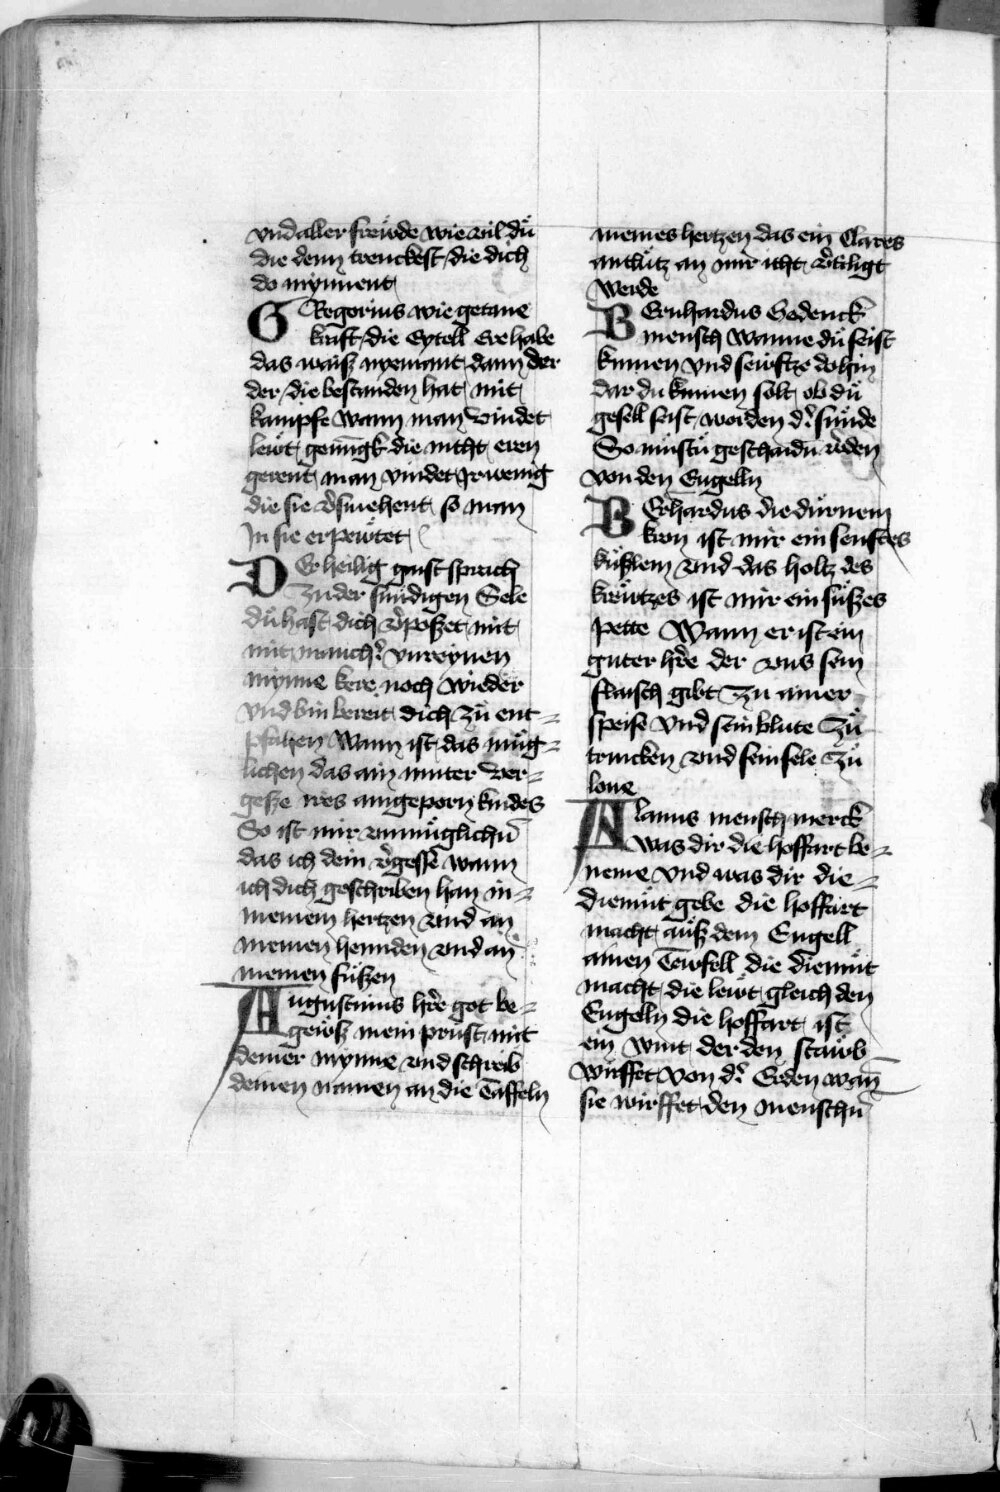 vnd aller freẅde wie vil dü
die denn trenckest die dich
do mynnent
GRegorius wie getane
kraft die Eytell Ere habe
das waisz nyemant dann der
der die bestanden hat mit
kampfe wann man vindet
lewt genügk die nicht eren
gerent man vindet Ir wenig
die sie v̾smehent so man
In sie erpewtet
DEr heilig gaist sprach
Zu der sundigen Sele
dü hast dich v̾poszet mit
mit manch̾ vnreynen
mynne kere noch wieder
vnd bin bereit dich Zü ent=
pfahen wann ist das müg=
lichen das ain muter ver=
gesze ires aingeporn kindes
So ist mir vnmüglichn̄
das ich dein v̾gessē wann
ich dich geschriben han in=
meinem hertzen vnd an
meinen hennden vnd an
meinen füszen
Augustinus hr̄e got be=
gewsz mein prust mit
deiner mynne vnd schreib
deinen namen an die Taffeln
meines hertzen das ein Clares
antlütz an mir icht v̾tiligt
werde
BErnhardus Gedenck
mensch wanne dü seist
kumen vnd sewftze dohin
dar du kumen solt ob dü
gesell seist worden d̾ sünde
So müstu geschaidn̄ w̾den
von den Engelln
BErhardus die dürnein
kron ist mir ein senftes
küszlein vnd das holtz des
krewtzes ist mir ein süszes
pette Wann er ist ein
guter hr̄e der vns sein
flaisch gibt Zu ainer
speise vnd sein blute Zü
trincken vnd sein sele Zü
lone
Alanus mensch merck
was dir die hoffart be=
neme vnd was dir die=
diemüt gebe die hoffart
macht ausz dem Engell
ainen Tewfell die diemüt
macht die lewt gleich den
Engeln die hoffart ist
ein wint der den stawb
wirffet von d̾ Erden wan̄
sie wirffet den menschn̄